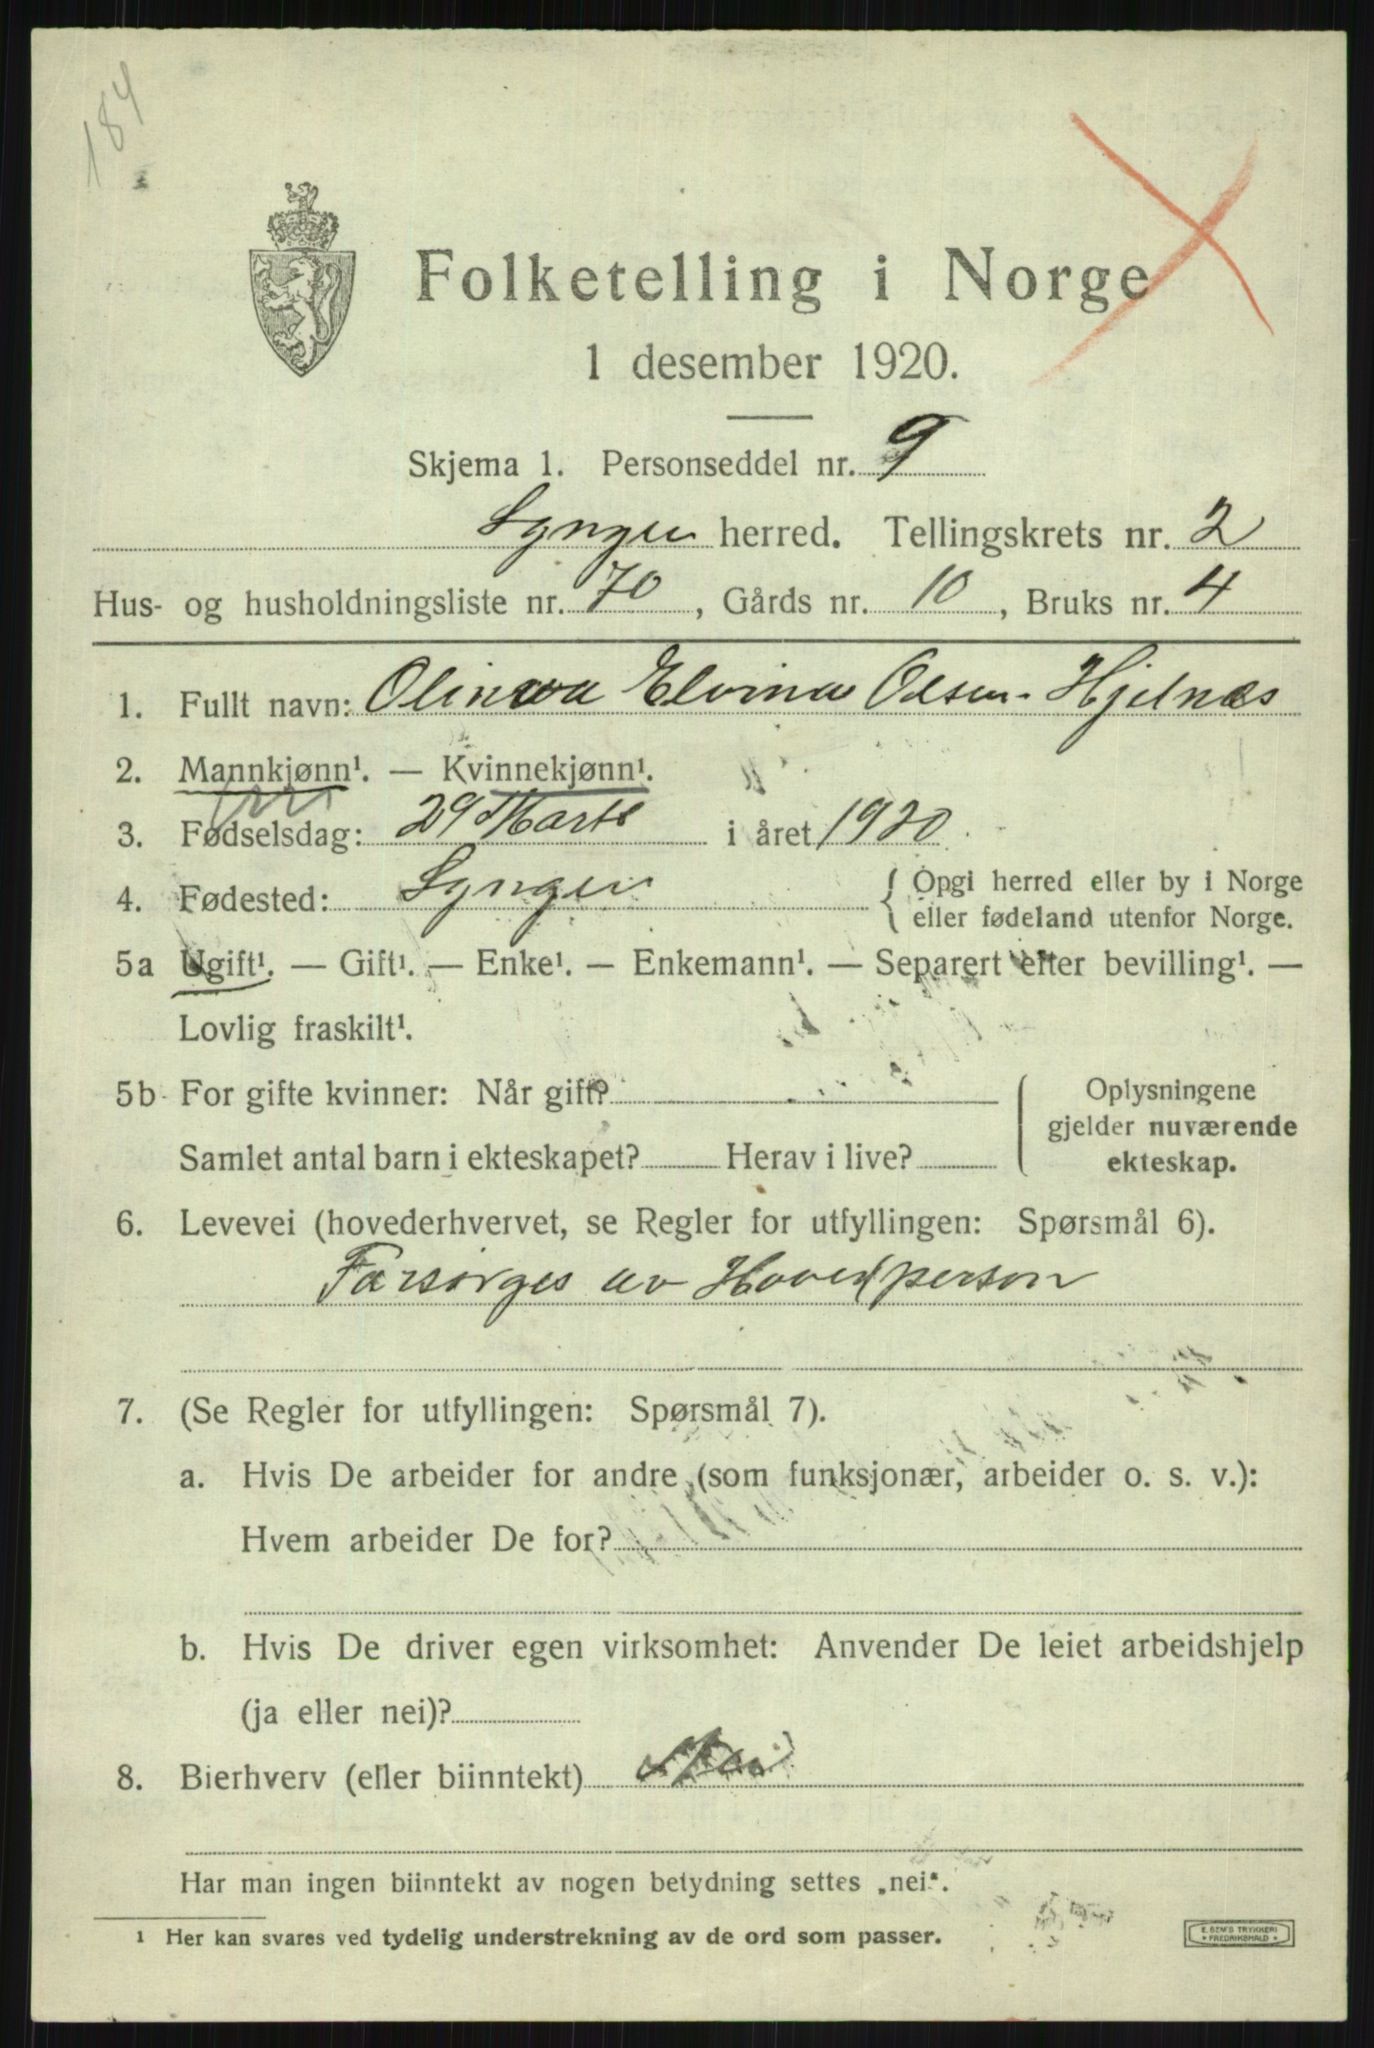 184
Folketelling i Norge
1 desember 1920.
Skjema 1. Personseddel nr. 9
Lyngen herred. Tellingskrets nr. 2
Hus- og husholdningsliste nr. 70, Gårds nr. 10, Bruks nr. 4
1. Fullt navn: Elvina Olsen Hjelnæs
2. Mannkjønn¹. — Kvinnekjønn¹.
3. Fødselsdag: 29 Marts i året 1920
4. Fødested: Lyngen { Opgi herred eller by i Norge
eller fødeland utenfor Norge.
5a Ugift¹. — Gift¹. — Enke¹. — Enkemann¹. — Separert efter bevilling¹. —
Lovlig fraskilt¹.
5b For gifte kvinner: Når gift?
Samlet antal barn i ekteskapet? Herav i live?
Oplysningene
gjelder nuværende
ekteskap.
6. Levevei (hovederhvervet, se Regler for utfyllingen: Spørsmål 6).
Forsørges av Hovedperson
7. (Se Regler for utfyllingen: Spørsmål 7).
a. Hvis De arbeider for andre (som funksjonær, arbeider o. s. v.):
Hvem arbeider De for?
b. Hvis De driver egen virksomhet: Anvender De leiet arbeidshjelp
(ja eller nei)?
8. Bierhverv (eller biinntekt) Nei
Har man ingen biinntekt av nogen betydning settes „nei“.
¹ Her kan svares ved tydelig understrekning av de ord som passer.
E. SEM'S TRYKKERI
FREDRIKSHALD